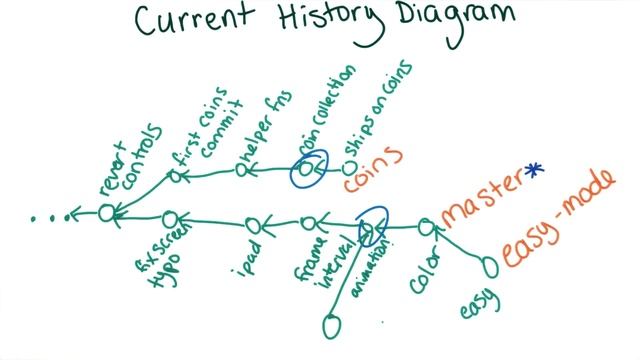 Current History Diagram
revert
controls
first coins
commit
helper fns
coin collection
ships on coins
coins
...
fix screen
typo
ipad
frame
interval
animation
color
master*
easy
easy-mode